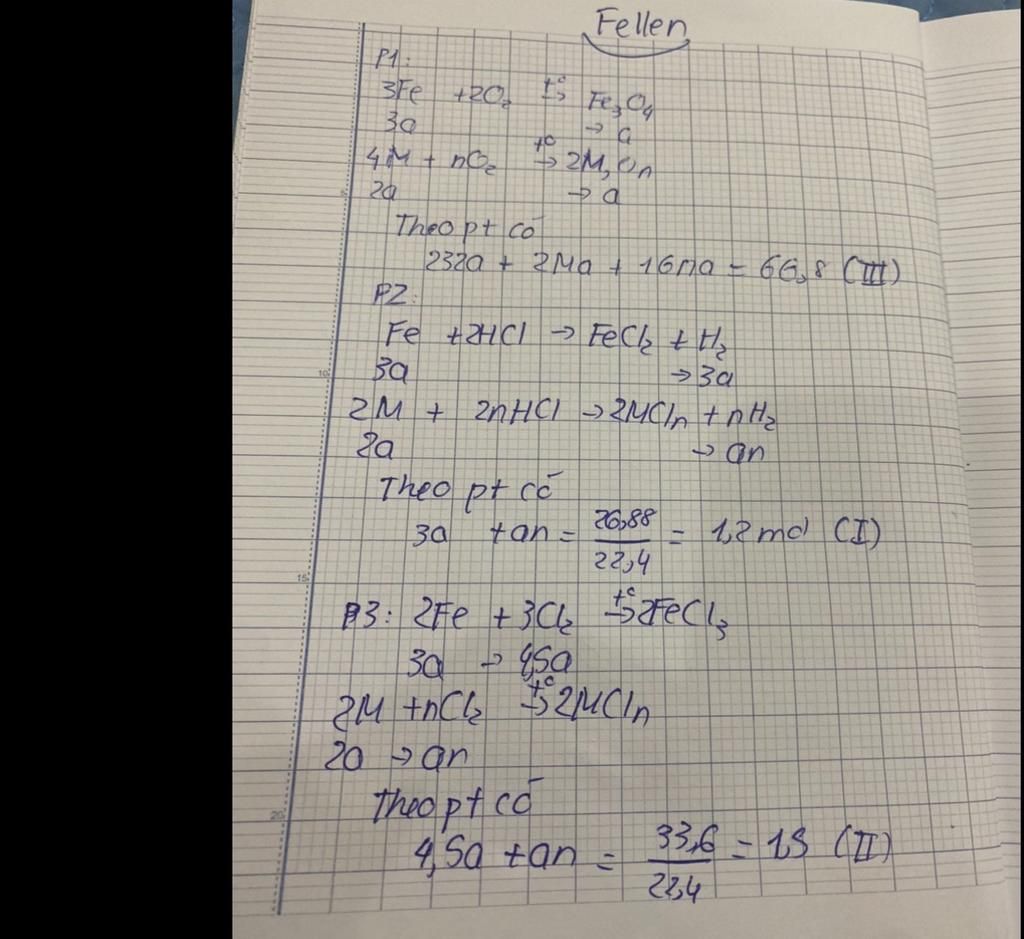 Fellen
P1:
3Fe +2O₂ t°→ Fe₃O₄
3a → a
4M + nO₂ t°→ 2M₂On
2a → a
Theo pt có
232a + 2Ma + 16na = 66,8 (III)
P2:
Fe +2HCl → FeCl₂ + H₂
3a → 3a
2M + 2nHCl → 2MCln + nH₂
2a → an
Theo pt có
3a + an = 26,88/22,4 = 1,2 mol (I)
P3: 2Fe + 3Cl₂ t°→ 2FeCl₃
3a → 4,5a
2M + nCl₂ t°→ 2MCln
2a → an
Theo pt có
4,5a + an = 33,6/22,4 = 1,5 (II)
10
15
20